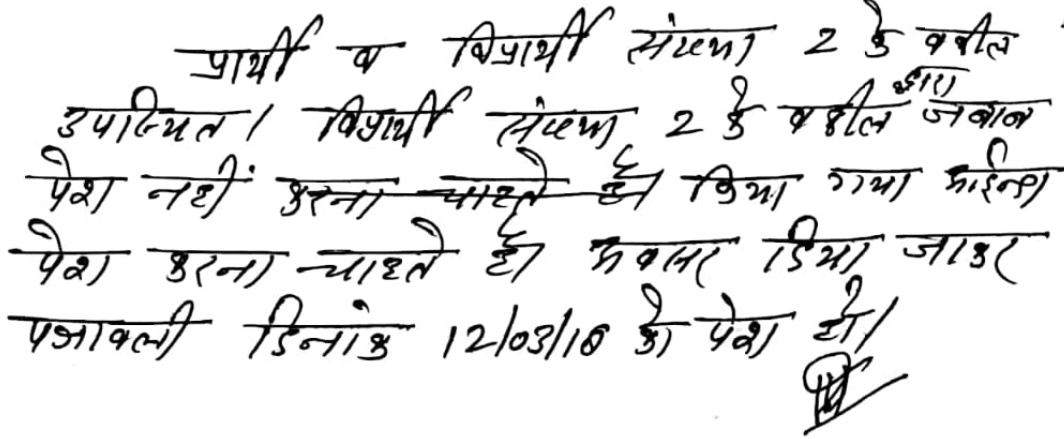 प्रार्थी व विप्रार्थी संख्या 2 के वकील
उपस्थित। विप्रार्थी संख्या 2 के वकील द्वारा जवाब
पेश नहीं करना चाहते है। किया गया आईन्दा
पेश करना चाहते है। अवसर दिया जाकर
पत्रावली दिनांक 12/03/18 को पेश हो।